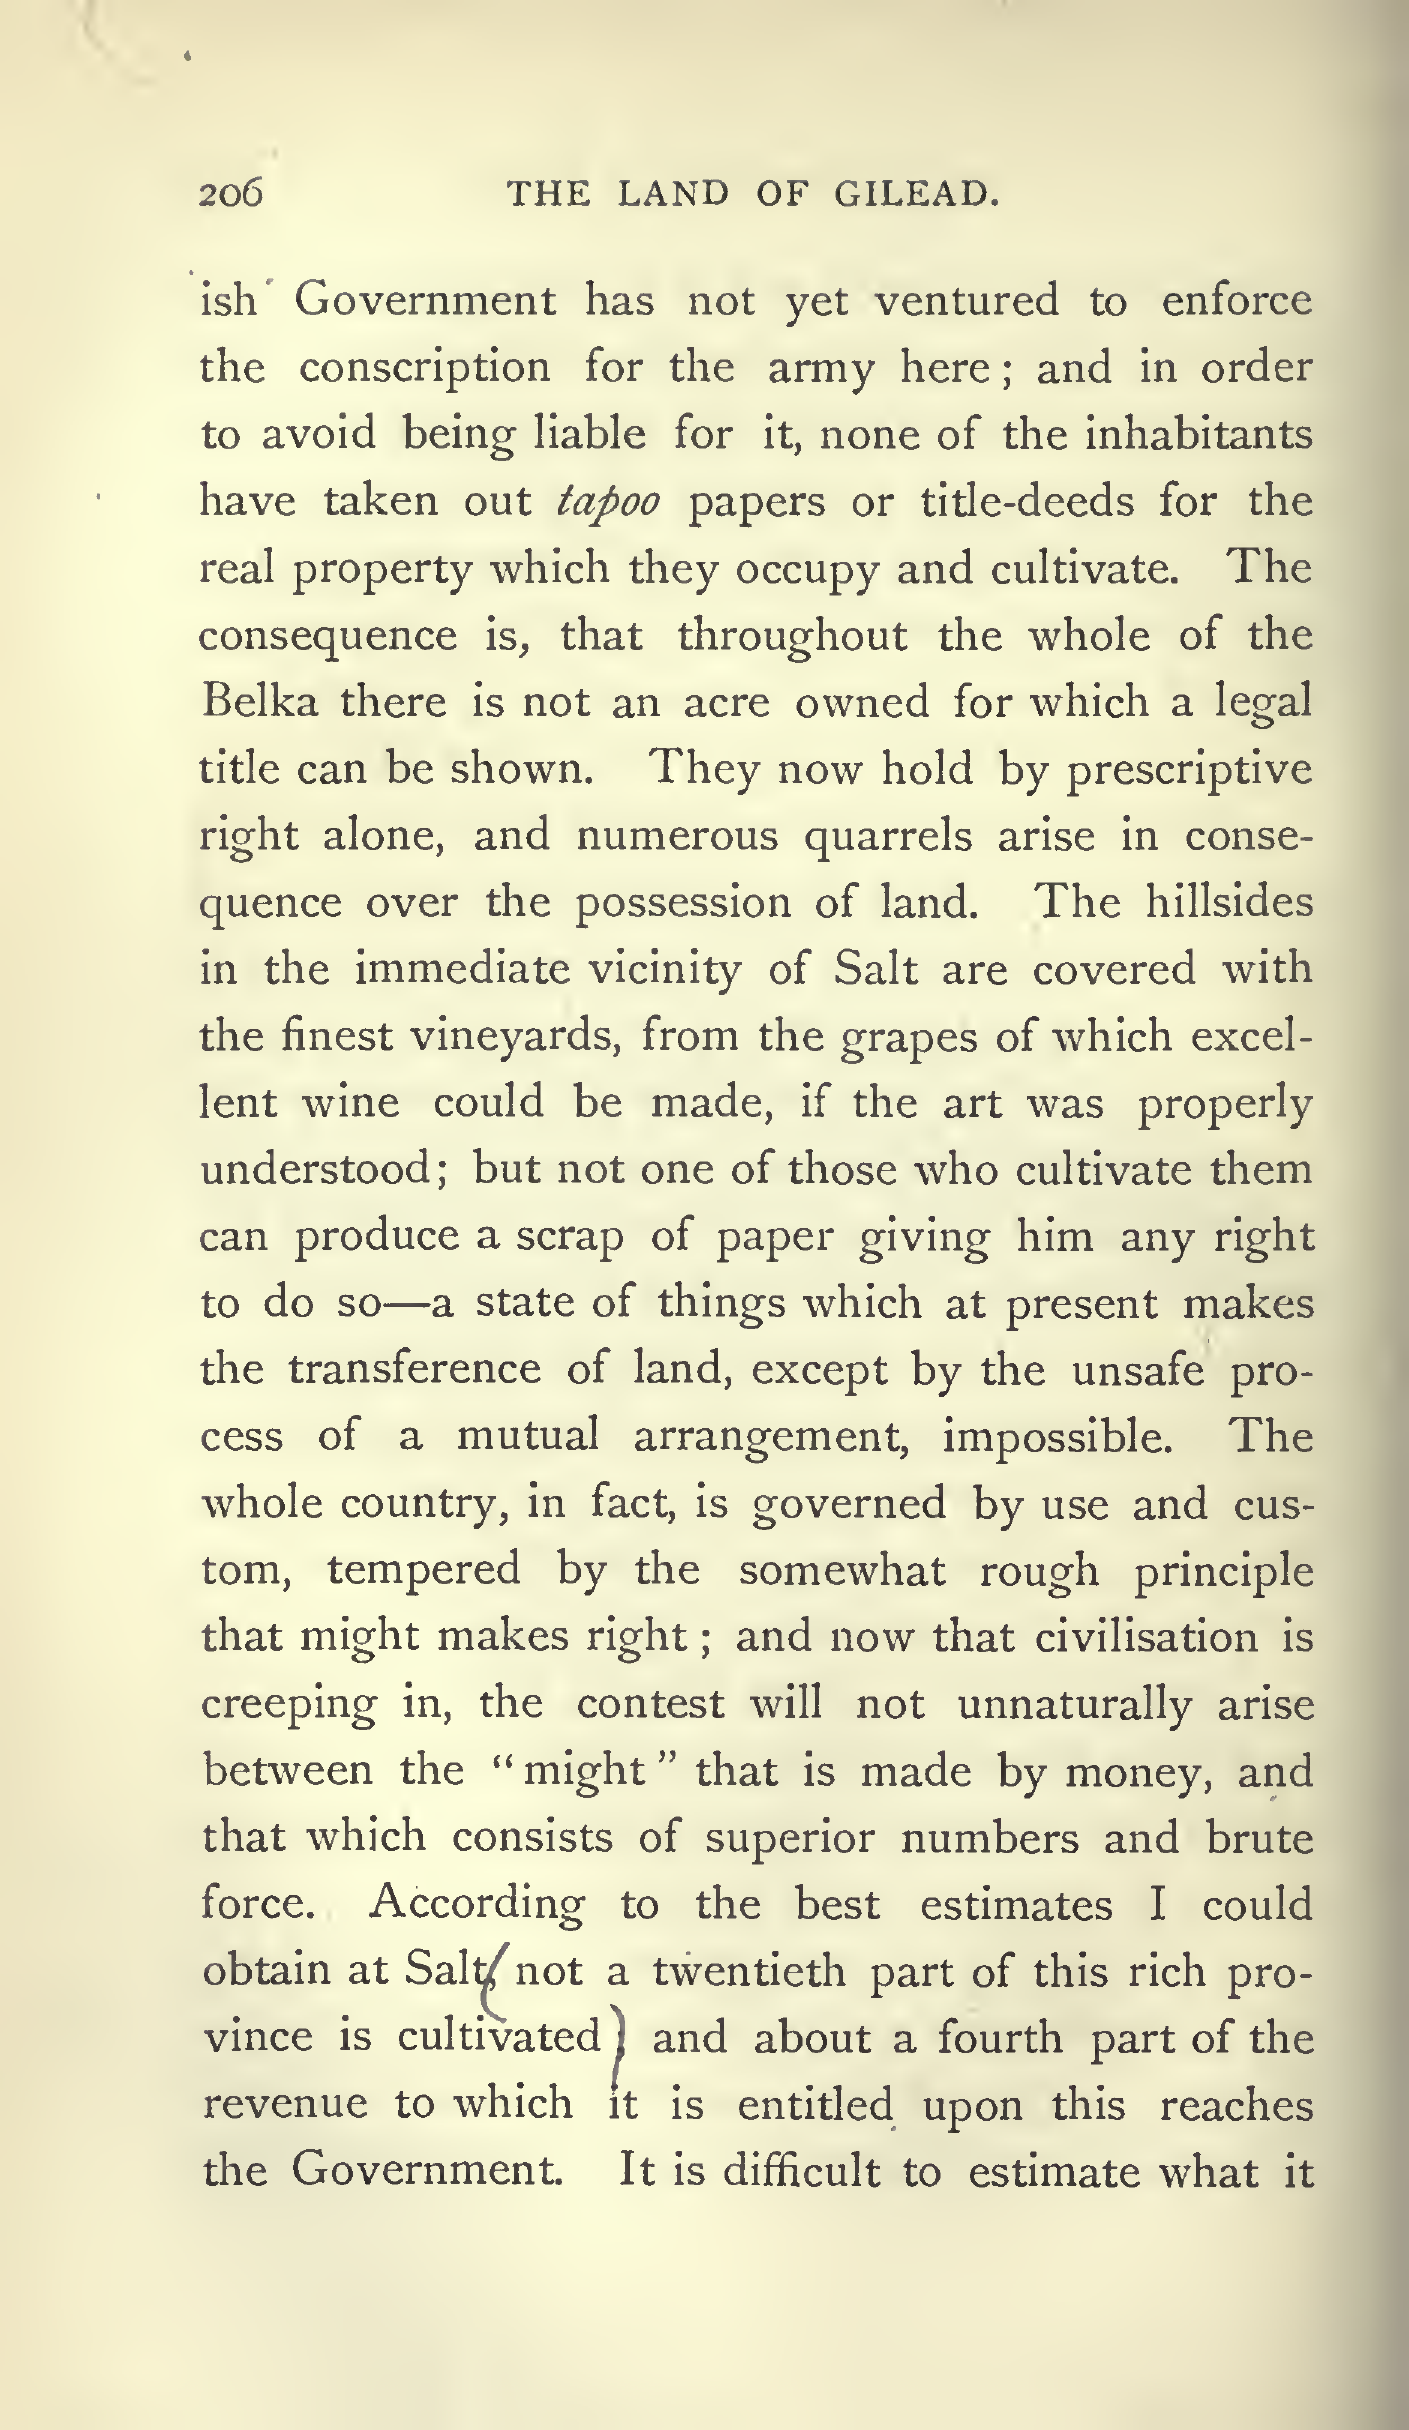 206 THE LAND OF GILEAD.
ish Government has not yet ventured to enforce
the conscription for the army here; and in order
to avoid being liable for it, none of the inhabitants
have taken out tapoo papers or title-deeds for the
real property which they occupy and cultivate. The
consequence is, that throughout the whole of the
Belka there is not an acre owned for which a legal
title can be shown. They now hold by prescriptive
right alone, and numerous quarrels arise in conse-
quence over the possession of land. The hillsides
in the immediate vicinity of Salt are covered with
the finest vineyards, from the grapes of which excel-
lent wine could be made, if the art was properly
understood; but not one of those who cultivate them
can produce a scrap of paper giving him any right
to do so—a state of things which at present makes
the transference of land, except by the unsafe pro-
cess of a mutual arrangement, impossible. The
whole country, in fact, is governed by use and cus-
tom, tempered by the somewhat rough principle
that might makes right; and now that civilisation is
creeping in, the contest will not unnaturally arise
between the "might" that is made by money, and
that which consists of superior numbers and brute
force. According to the best estimates I could
obtain at Salt, not a twentieth part of this rich pro-
vince is cultivated, and about a fourth part of the
revenue to which it is entitled upon this reaches
the Government. It is difficult to estimate what it